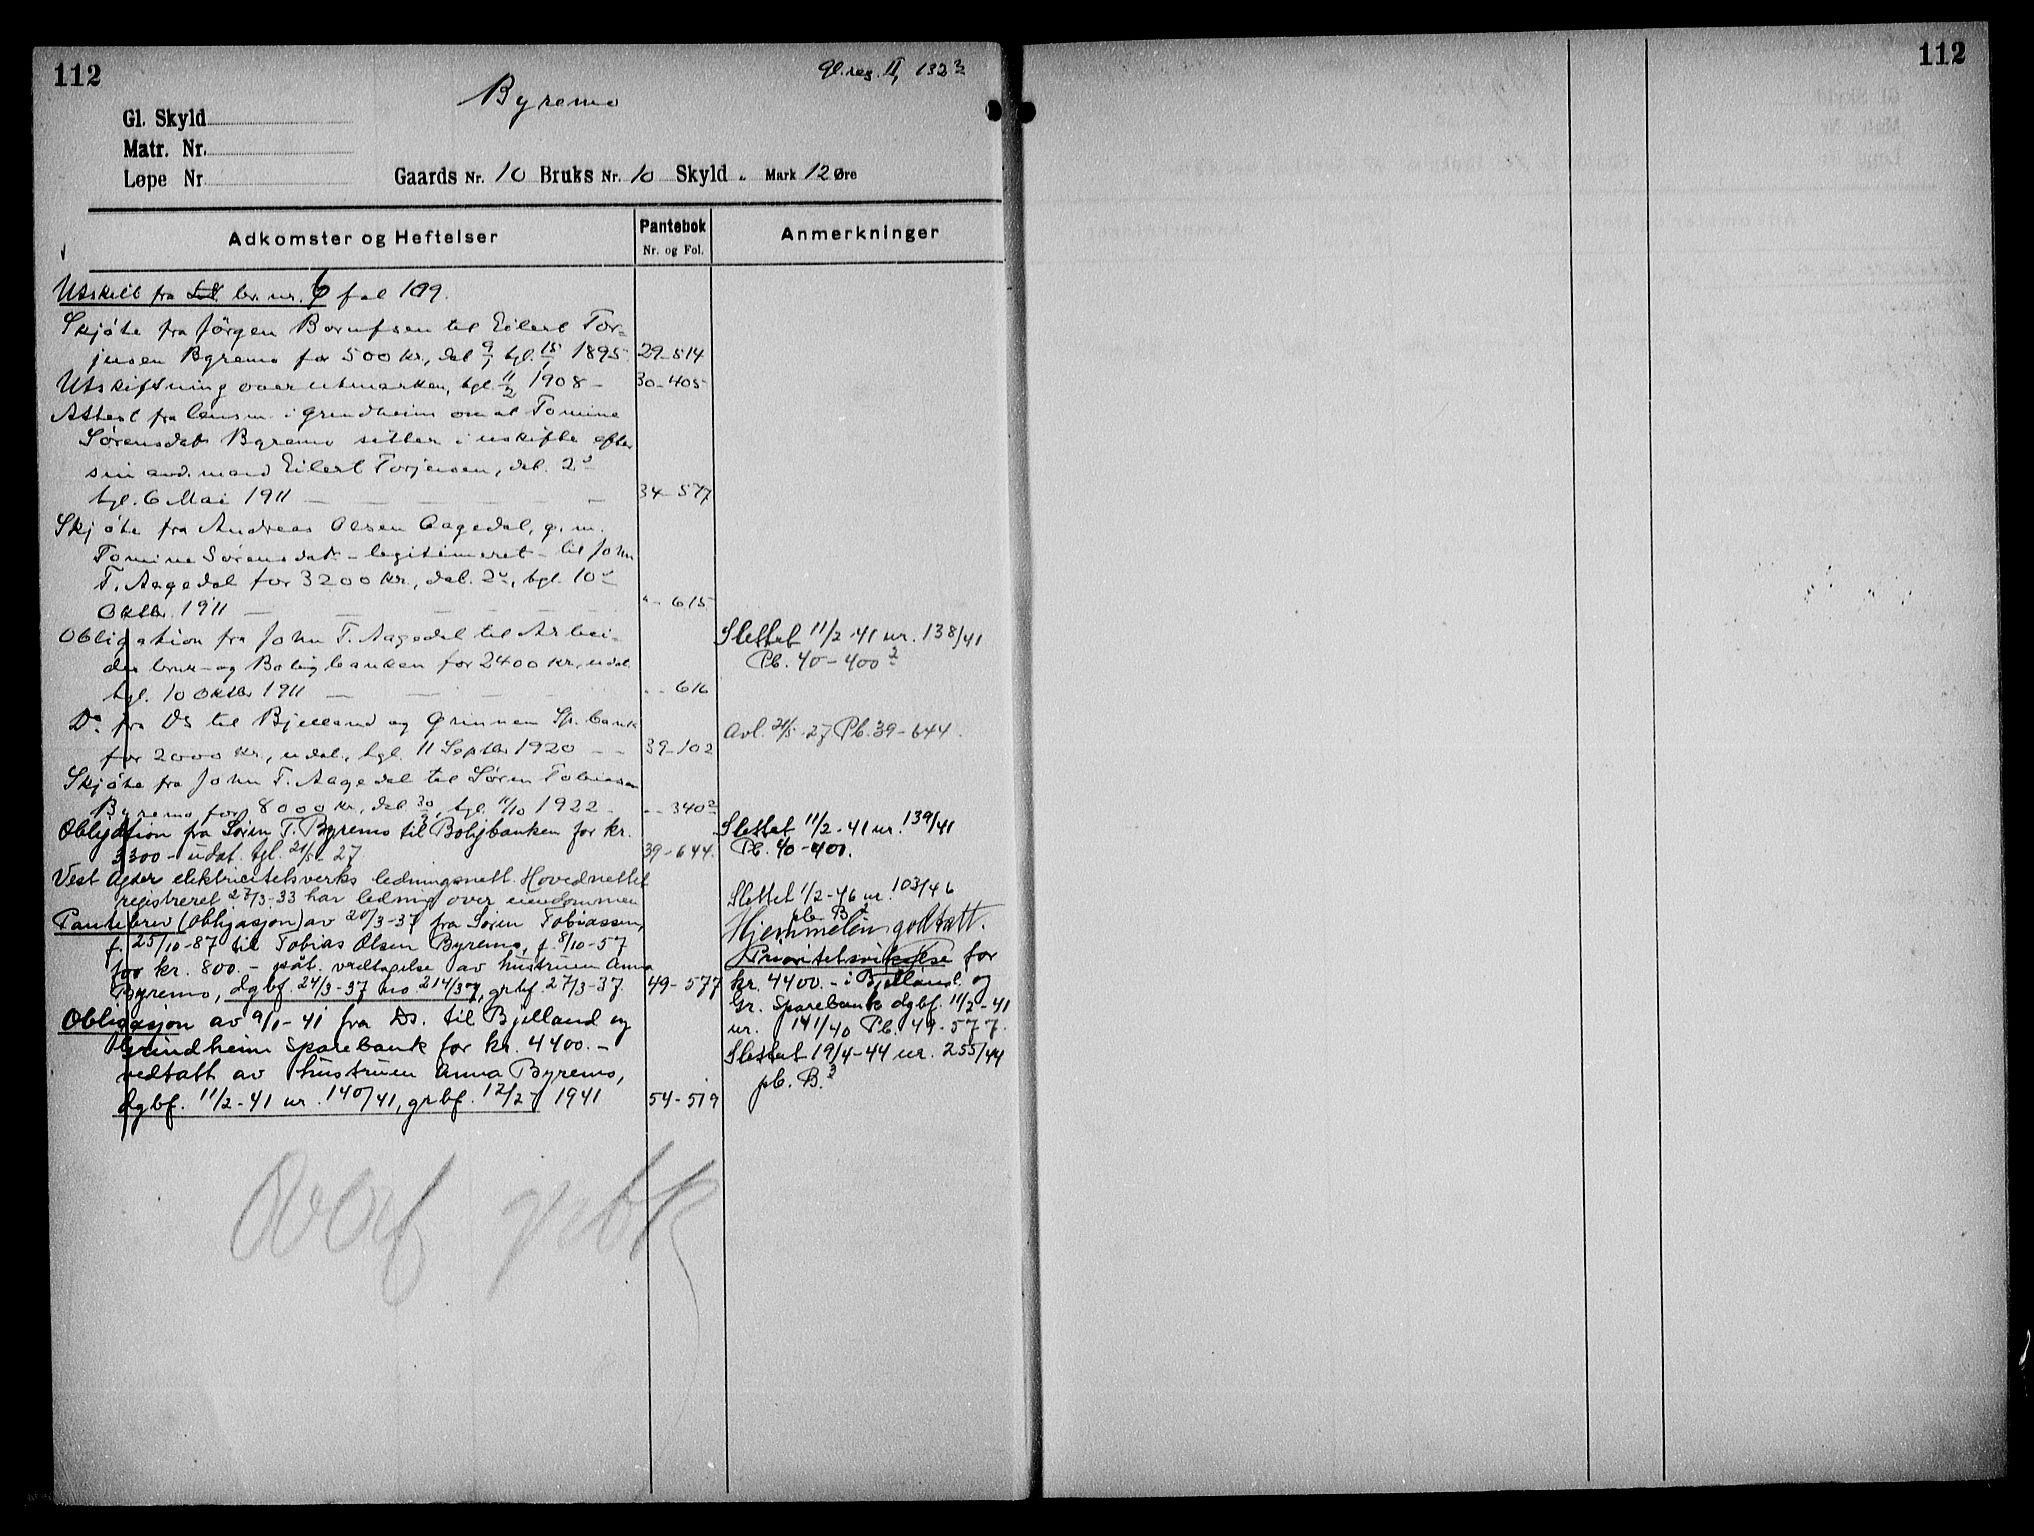 112
Gl. reg. II, 132
Byremo
Gl. Skyld
Matr. Nr.
Løpe Nr
Gaards Nr. 10 Bruks Nr. 10 Skyld „ Mark 12 Øre
Adkomster og Heftelser
Pantebok
Nr. og Fol.
Anmerkninger
Utskilt fra br. nr. 6 fol 109.
Skjøte fra Jörgen til Eilert Tor-
jensen Byremo for 500 kr., dat 9/1 tgl. 15/1 1895 29-514
Utskiftning over utmarken, tgl. 11/2 1908 - 30-405
Attest fra lensm. i Grindheim om at Tomine
Sørensdatr Byremo sitter i uskifte efter
sin avd. mand Eilert Torjensen, dat. 2
tgl. 6 Mai 1911 - 34-577
Skjøte fra Andreas Olsen Aagedal, g. m.
Tomine Sørensdatr - legitimeret - til John
T. Aagedal for 3200 kr., dat. 2, tgl. 10
Oktbr. 1911 - "- 615
Obligation fra John T. Aagedal til Arbei-
derbruk- og Boligbanken for 2400 kr., udat.
tgl. 10 Oktbr 1911 - "- 616
Slettet 11/2-41 nr. 138/41
Pb. 40-400
Do fra Ds til Bjelland og Grinnem Sp. bank
for 2000 kr., udat., tgl. 11 Septbr 1920 - - 39-102
Avl. 21/5-27 Pb. 39-644.
Skjøte fra John T. Aagedal til Søren Tobiassen
Byremo for 8000 kr., dat 30/9, tgl. 11/10 1922 - "- 340
Obligation fra Søren T. Byremo til Boligbanken for kr.
3300 - udat. tgl. 21/5-27 39-644.
Slettet 11/2-41 nr. 139/41
Pb. 40-400.
Vest Agder elektricitetsverks ledningsnett. Hovednettet
registreret 27/3-33 har ledning over eiendommen
Pantebrev (obligasjon) av 20/3-37 fra Søren Tobiassen,
f. 25/10-87 til Tobias Olsen Byremo, f. 8/10-57
for kr. 800.- påt. vedtagelse av hustruen Anna
Byremo, dgbf. 24/3-37 no 214/37, grbf. 27/3-37. 49-577
Slettet 1/2-46 nr. 103/46
pb. B
Hjemmelen godtatt.
Prioritetsvikelse for
kr. 4400.- i Bjelland og
Gr. Sparebank dgbf. 11/2-41
nr. 141/40 Pb. 49-577.
Obligasjon av 9/1-41 fra Ds. til Bjelland og
Grindheim Sparebank for kr. 4400.-
vedtatt av hustruen Anna Byremo,
dgbf. 11/2-41 nr. 140/41, grbf. 12/2 1941 54-519
Slettet 19/4-44 nr. 255/44
pb. B.
112